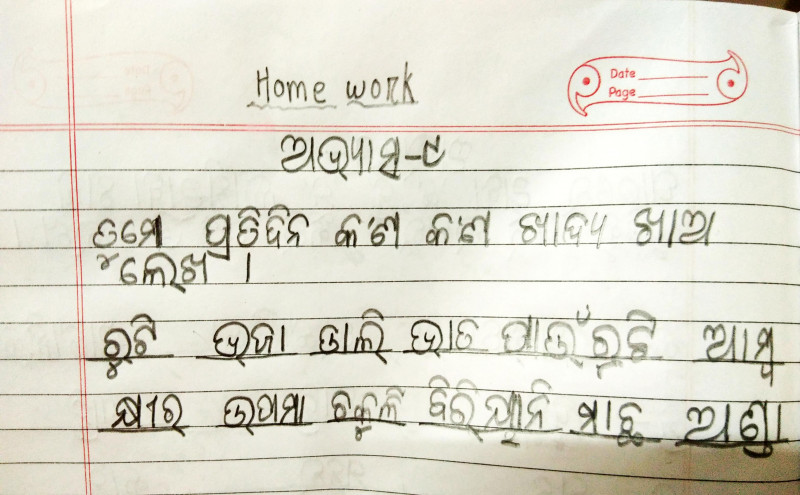 Home work
Date
Page
ଅଭ୍ୟାସ-୯
ତୁମେ ପ୍ରତିଦିନ କ'ଣ କ'ଣ ଖାଦ୍ୟ ଖାଅ
ଲେଖ ।
ରୁଟି ଭଜା ଡାଲି ଭାତ ପାଉଁରୁଟି ଆମ୍ବ
କ୍ଷୀର ଉପମା ଚକୁଳି ବିରିୟାନି ମାଛ ଅଣ୍ଡା